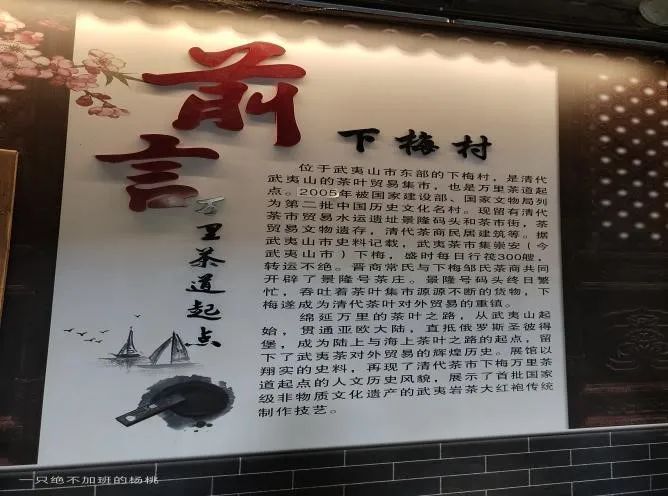 前言
万里茶道起点
下梅村
位于武夷山市东部的下梅村，是清代
武夷山的茶叶贸易集市，也是万里茶道起
点。2005年被国家建设部、国家文物局列
为第二批中国历史文化名村。现留有清代
茶市贸易水运遗址景隆码头和茶市街，茶
贸易文物遗存，清代茶商民居建筑等。据
武夷山市史料记载，武夷茶市集崇安（今
武夷山市）下梅，盛时每日行筏300艘，
转运不绝。晋商常氏与下梅邹氏茶商共同
开辟了景隆号茶庄。景隆号码头终日繁
忙，吞吐着茶叶集市源源不断的货物，下
梅遂成为清代茶叶对外贸易的重镇。
绵延万里的茶叶之路，从武夷山起
始，贯通亚欧大陆，直抵俄罗斯圣彼得
堡，成为陆上与海上茶叶之路的起点，留
下了武夷茶对外贸易的辉煌历史。展馆以
翔实的史料，再现了清代茶市下梅万里茶
道起点的人文历史风貌，展示了首批国家
级非物质文化遗产的武夷岩茶大红袍传统
制作技艺。
一只绝不加班的杨桃